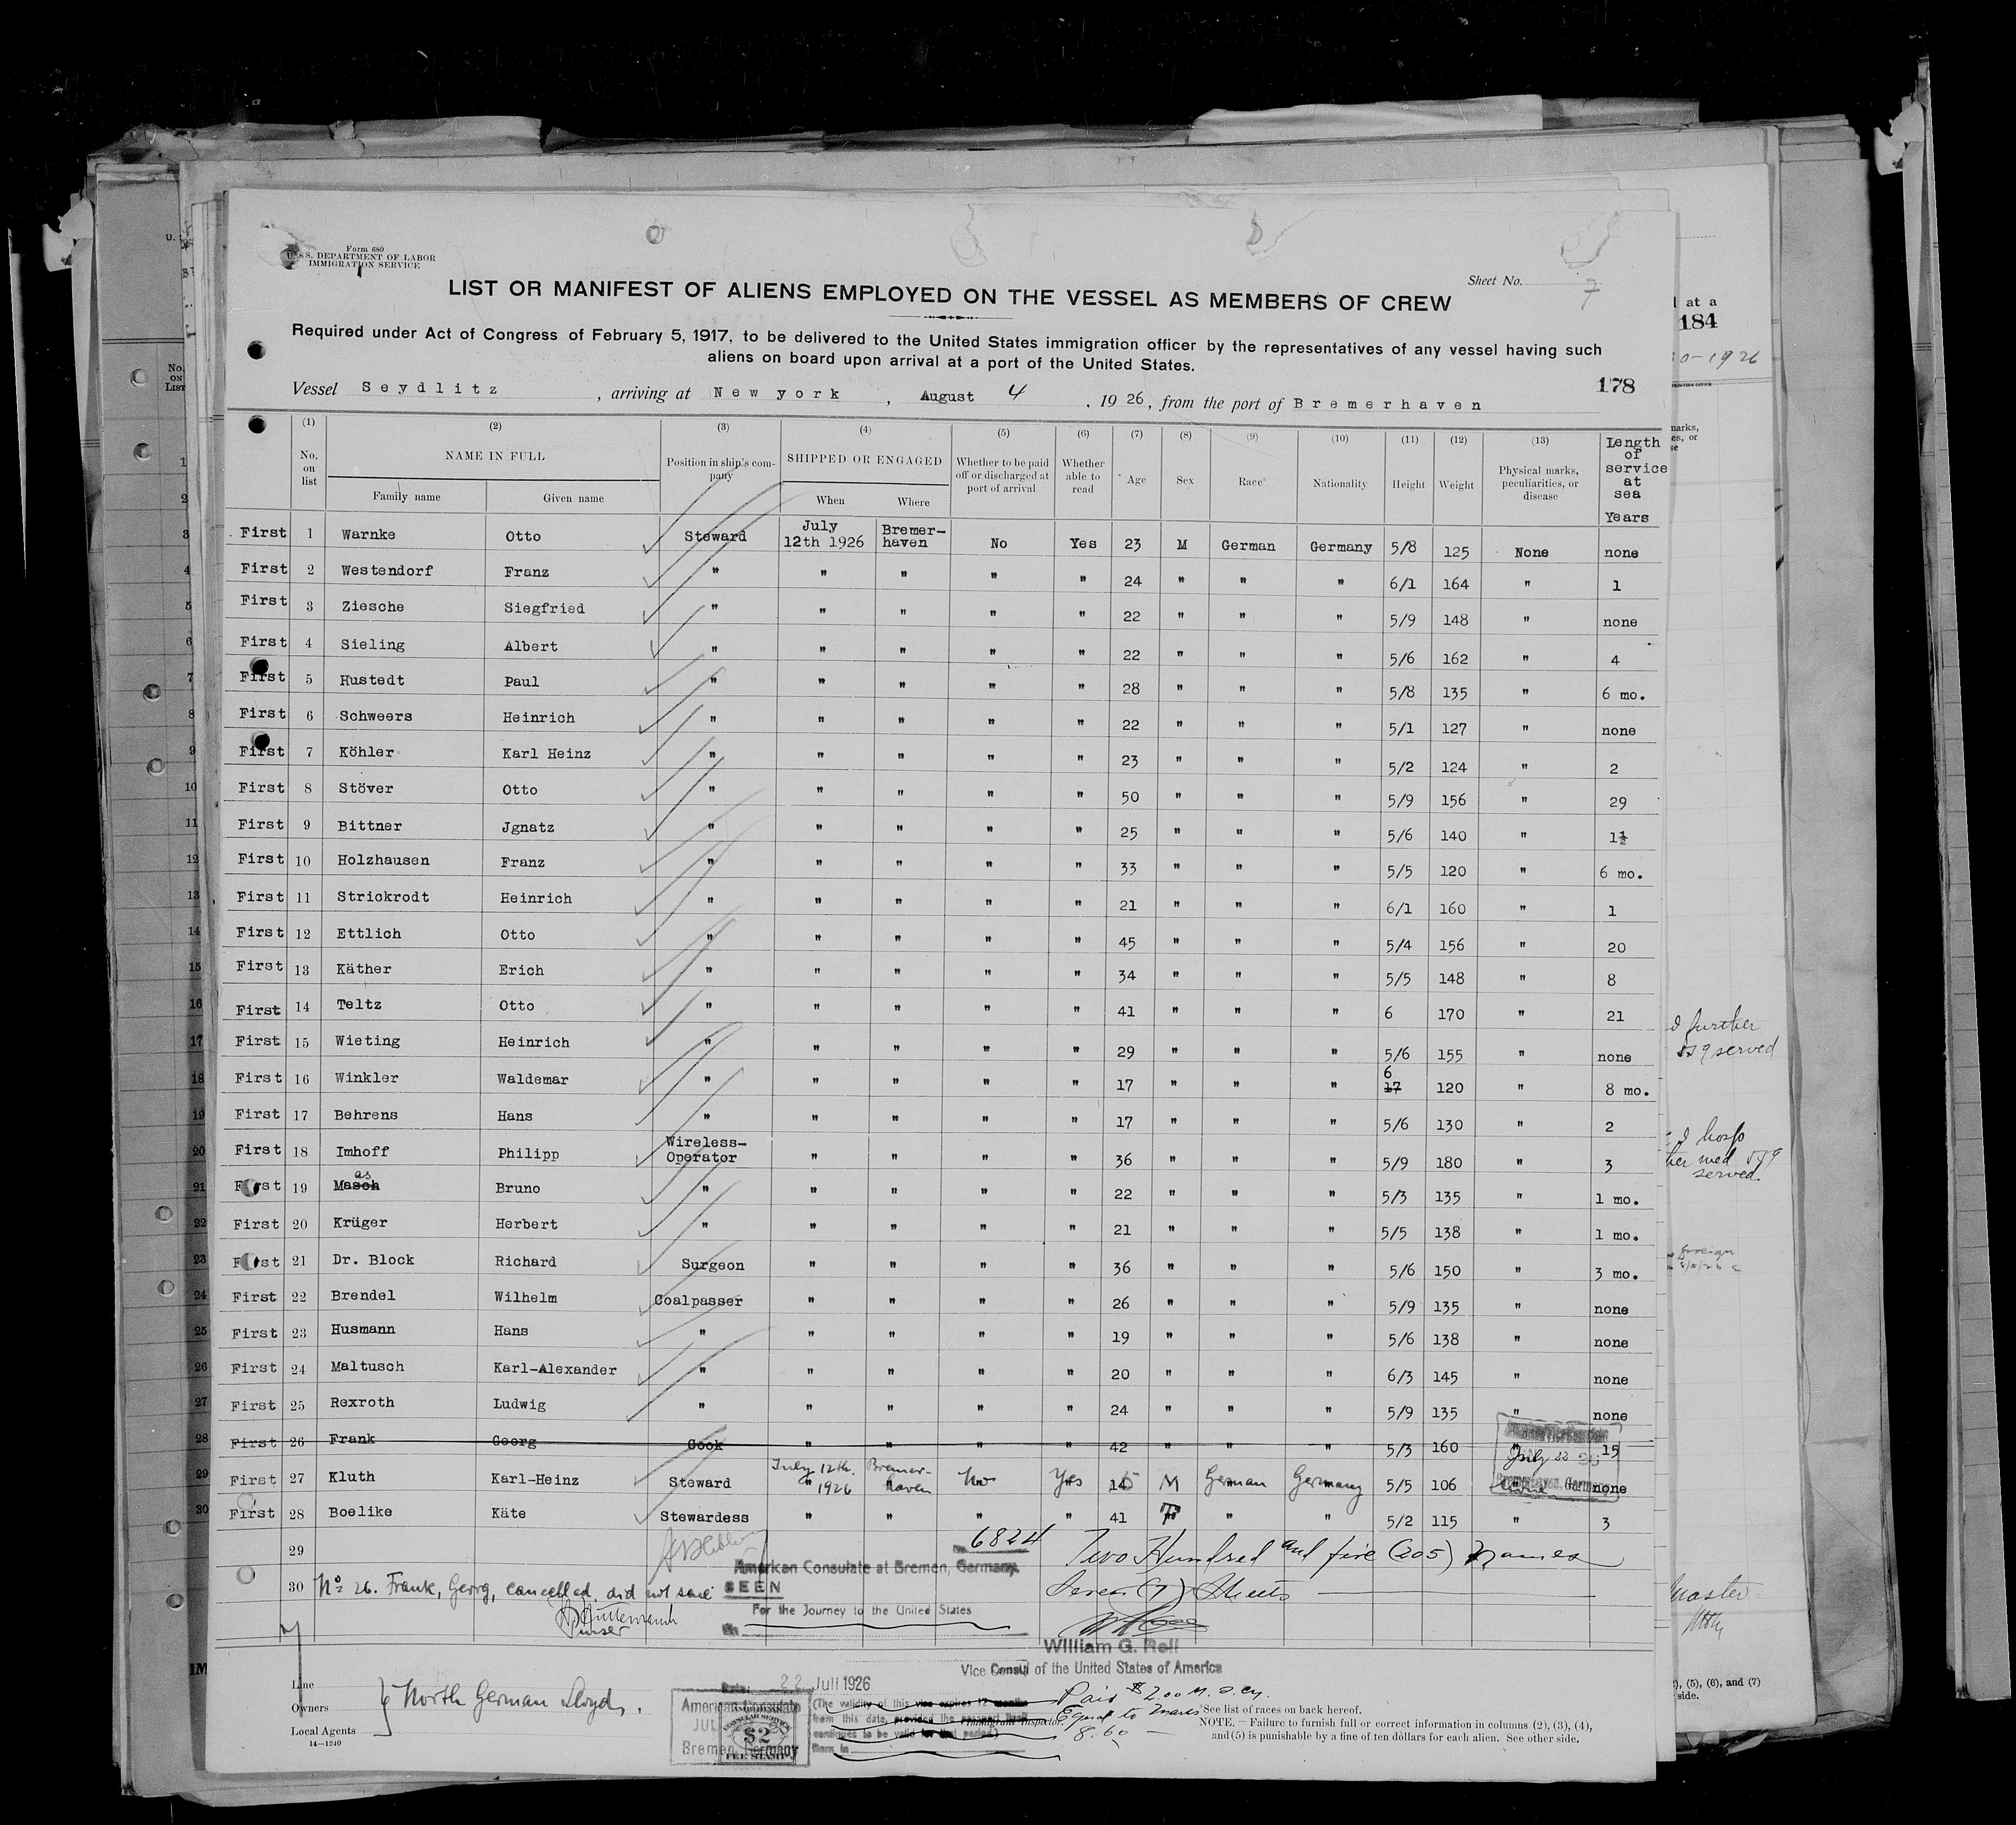 Form 680
U. S. DEPARTMENT OF LABOR
IMMIGRATION SERVICE
Sheet No. 7
LIST OR MANIFEST OF ALIENS EMPLOYED ON THE VESSEL AS MEMBERS OF CREW
Required under Act of Congress of February 5, 1917, to be delivered to the United States immigration officer by the representatives of any vessel having such
aliens on board upon arrival at a port of the United States.
178
Vessel Seydlitz, arriving at New york, August 4, 1926, from the port of Bremerhaven
(1) (2) (3) (4) (5) (6) (7) (8) (9) (10) (11) (12) (13)
No. on list NAME IN FULL Family name Given name Position in ship's company SHIPPED OR ENGAGED When Where Whether to be paid off or discharged at port of arrival Whether able to read Age Sex Race* Nationality Height Weight Physical marks, peculiarities, or disease Length of service at sea Years
First 1 Warnke Otto Steward July 12th 1926 Bremer-haven No Yes 23 M German Germany 5/8 125 None none
First 2 Westendorf Franz " " " " " 24 " " " 6/1 164 " 1
First 3 Ziesche Siegfried " " " " " 22 " " " 5/9 148 " none
First 4 Sieling Albert " " " " " 22 " " " 5/6 162 " 4
First 5 Hustedt Paul " " " " " 28 " " " 5/8 135 " 6 mo.
First 6 Schweers Heinrich " " " " " 22 " " " 5/1 127 " none
First 7 Köhler Karl Heinz " " " " " 23 " " " 5/2 124 " 2
First 8 Stöver Otto " " " " " 50 " " " 5/9 156 " 29
First 9 Bittner Jgnatz " " " " " 25 " " " 5/6 140 " 1½
First 10 Holzhausen Franz " " " " " 33 " " " 5/5 120 " 6 mo.
First 11 Strickrodt Heinrich " " " " " 21 " " " 6/1 160 " 1
First 12 Ettlich Otto " " " " " 45 " " " 5/4 156 " 20
First 13 Käther Erich " " " " " 34 " " " 5/5 148 " 8
First 14 Teltz Otto " " " " " 41 " " " 6 170 " 21
First 15 Wieting Heinrich " " " " " 29 " " " 5/6 155 " none
First 16 Winkler Waldemar " " " " " 17 " " " 6 17 120 " 8 mo.
First 17 Behrens Hans " " " " " 17 " " " 5/6 130 " 2
First 18 Imhoff Philipp Wireless-Operator " " " " 36 " " " 5/9 180 " 3
First 19 Masch as Bruno " " " " " 22 " " " 5/3 135 " 1 mo.
First 20 Krüger Herbert " " " " " 21 " " " 5/5 138 " 1 mo.
First 21 Dr. Block Richard Surgeon " " " " 36 " " " 5/6 150 " 3 mo.
First 22 Brendel Wilhelm Coalpasser " " " " 26 " " " 5/9 135 " none
First 23 Husmann Hans " " " " " 19 " " " 5/6 138 " none
First 24 Maltusch Karl-Alexander " " " " " 20 " " " 6/3 145 " none
First 25 Rexroth Ludwig " " " " " 24 " " " 5/9 135 " none
First 26 Frank Georg Cook " " " " 42 " " " 5/3 160 " 15
July 22 26
Bremerhaven, Germany
First 27 Kluth Karl-Heinz Steward July 12th. 1926 Bremer-haven No Yes 14 5 M German Germany 5/5 106 none
First 28 Boelike Käte Stewardess " " " " 41 F " " 5/2 115 " 3
29
No. 6824
Two Hundred and five (205) names
American Consulate at Bremen, Germany.
30 No 26. Frank, Georg, cancelled, did not sail
SEEN
Seven (7) Sheets
For the Journey to the United States
Purser
William G. Roll
Vice Consul of the United States of America
Date: 22 Juli 1926
Line
Owners
Local Agents
North German Lloyd.
14—1240
American Consulate
JUL
Bremen, Germany
CONSULAR SERVICE
$2
FEE STAMP
(The validity of this vise expires 12 months
from this date, provided the passport itself
continues to be valid for that period)
Immigrant Inspector.
Paid $2.00
Equal to Marks
8.60
See list of races on back hereof.
NOTE.—Failure to furnish full or correct information in columns (2), (3), (4),
and (5) is punishable by a fine of ten dollars for each alien. See other side.
at a
184
1926
further
served
hosp
served.
foreign
master
(5), (6), and (7)
side.
U.
No.
ON
LIST
1
2
3
4
5
6
7
8
9
10
11
12
13
14
15
16
17
18
19
20
21
22
23
24
25
26
27
28
29
30
IM